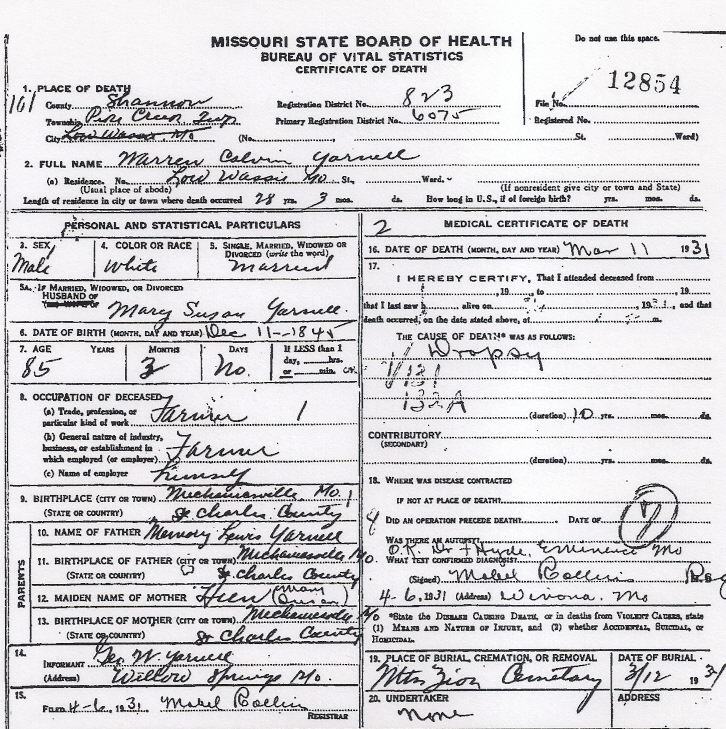 MISSOURI STATE BOARD OF HEALTH
BUREAU OF VITAL STATISTICS
CERTIFICATE OF DEATH
Do not use this space.
12854
1. PLACE OF DEATH
101
County Shannon
Registration District No. 823
File No.
Township Pike Creek Twp
Primary Registration District No. 6075
Registered No.
City Low Wassie, Mo (No. St. Ward)
2. FULL NAME Warren Calvin Yarnell
(a) Residence. No. Low Wassie Mo St., Ward.
(Usual place of abode) (If nonresident give city or town and State)
Length of residence in city or town where death occurred 28 yrs. 3 mos. ds. How long in U.S., if of foreign birth? yrs. mos. ds.
PERSONAL AND STATISTICAL PARTICULARS
3. SEX 4. COLOR OR RACE 5. SINGLE, MARRIED, WIDOWED OR
DIVORCED (write the word)
Male White Married
5A. IF MARRIED, WIDOWED, OR DIVORCED
HUSBAND OF
Mary Susan Yarnell
6. DATE OF BIRTH (MONTH, DAY AND YEAR) Dec 11-1845
7. AGE YEARS MONTHS DAYS If LESS than 1
day, hrs.
or min.
85 3 No.
8. OCCUPATION OF DECEASED
(a) Trade, profession, or
particular kind of work Farmer 1
(b) General nature of industry,
business, or establishment in
which employed (or employer) Farmer
(c) Name of employer himself
9. BIRTHPLACE (CITY OR TOWN) Mechanicsville Mo. 1
(STATE OR COUNTRY) St Charles County
PARENTS
10. NAME OF FATHER Memory Lewis Yarnell
11. BIRTHPLACE OF FATHER (CITY OR TOWN) Mechanicsville Mo.
(STATE OR COUNTRY) St Charles County
12. MAIDEN NAME OF MOTHER (Mary
13. BIRTHPLACE OF MOTHER (CITY OR TOWN) Mechanicsville Mo
(STATE OR COUNTRY) St Charles County
14.
INFORMANT Geo W. Yarnell
(Address) Willow Springs Mo.
15.
FILED 4-6, 1931 Mabel Rollins
REGISTRAR
2 MEDICAL CERTIFICATE OF DEATH
16. DATE OF DEATH (MONTH, DAY AND YEAR) Mar 11 1931
17.
I HEREBY CERTIFY, That I attended deceased from
, 19 , to , 19
that I last saw h alive on , 193 , and that
death occurred, on the date stated above, at m.
THE CAUSE OF DEATH* WAS AS FOLLOWS:
Dropsy
131
132A
(duration) 10 yrs. mos. ds.
CONTRIBUTORY
(SECONDARY)
(duration) yrs. mos. ds.
18. WHERE WAS DISEASE CONTRACTED
IF NOT AT PLACE OF DEATH?
DID AN OPERATION PRECEDE DEATH? DATE OF
7
WAS THERE AN AUTOPSY?
O.K. Dr F Hyde, Eminence Mo
WHAT TEST CONFIRMED DIAGNOSIS?
(Signed) Mabel Rollins Reg
4-6, 1931 (Address) Winona Mo.
*State the DISEASE CAUSING DEATH, or in deaths from VIOLENT CAUSES, state
(1) MEANS AND NATURE OF INJURY, and (2) whether ACCIDENTAL, SUICIDAL, or
HOMICIDAL.
19. PLACE OF BURIAL, CREMATION, OR REMOVAL DATE OF BURIAL
Mtn Zion Cemetary 3/12 1931
20. UNDERTAKER ADDRESS
None